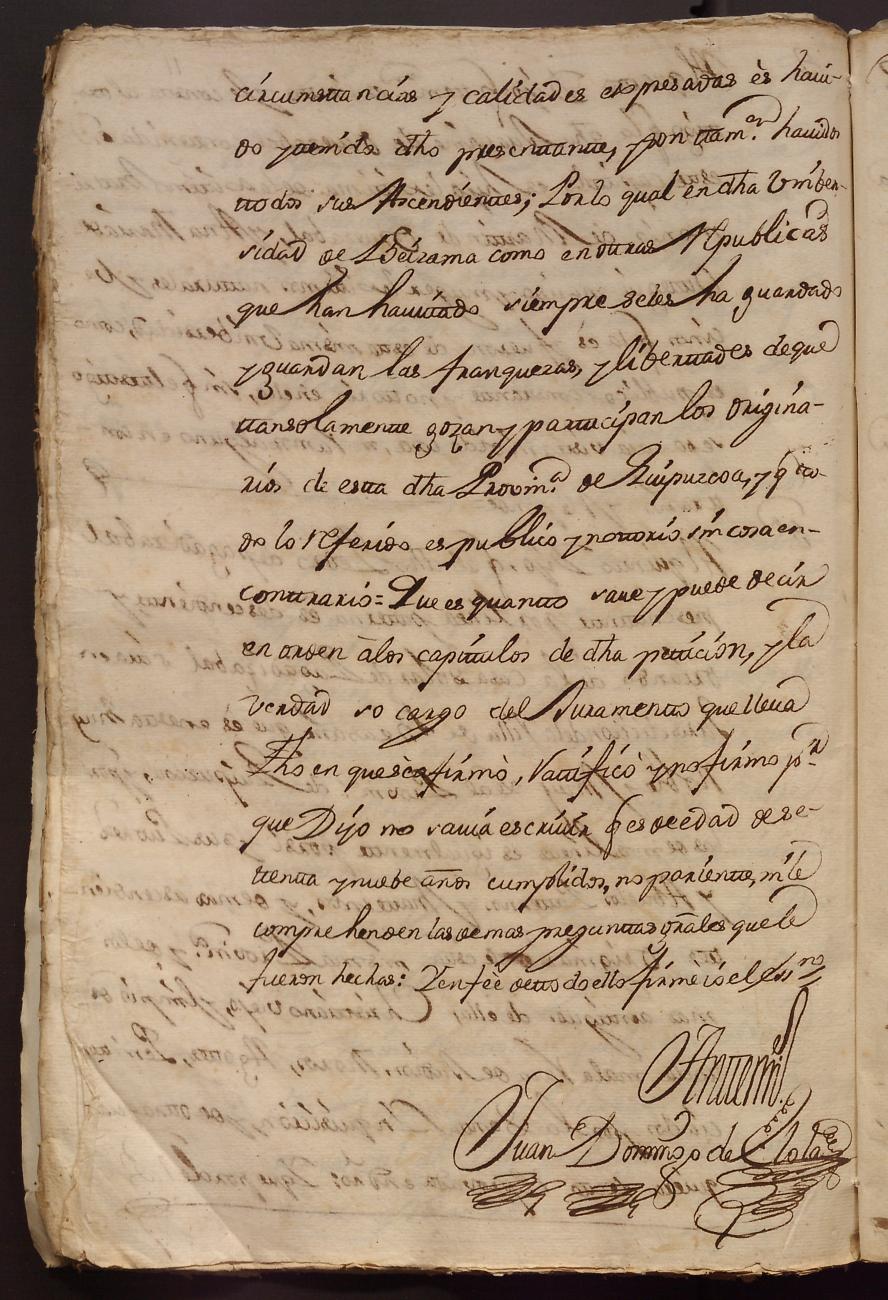 circumstancias y calidades expresadas ès havi-
do ytenido dho presentante, y por ttam.n havidos
ttodos sus Ascendientes; Por lo qual en dha Vniber-
sidad de Beizama como en otras Republicas
que han havitado siempre seles ha guardado
y guardan las franquezas, y libertades de que
ttansolamente gozan y partticipan los origina-
rios de esta dha Provin.a de Guipuzcoa, y q tto-
do lo referido es publico y nottorio sin cosa en-
conttrario = Que es quanto save y puede decir
en orden àlos capittulos de dha petticion, y la
verdad so cargo del Juramento que lleva
dho en quesèafirmò, Rattificò y nofirmo por
que Dijo no savia escrivir q es de edad de se-
ttenta y nuebe años cumplidos, no pariente, ni le
comprehenden las demas preguntas grales que le
fueron hechas: Y en feè de ttodo ello firme io el Ess.no
Antemi
Juan Domingo de